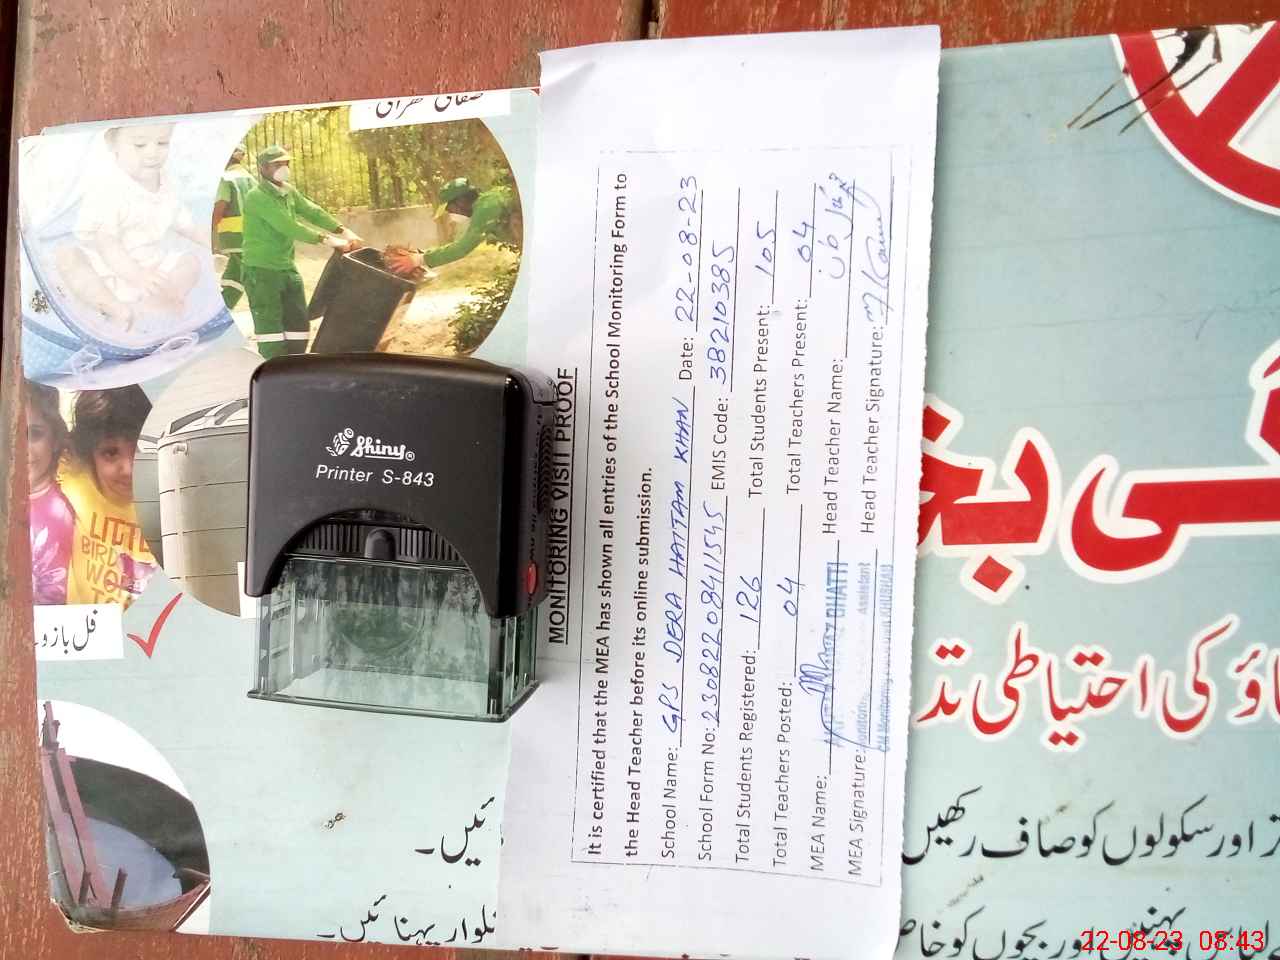 صفائی ستھرائی
LITTLE
BIRD
WO
فل بازو
Shiny®
Printer S-843
MONITORING VISIT PROOF
It is certified that the MEA has shown all entries of the School Monitoring Form to
the Head Teacher before its online submission.
School Name: GPS DERA HATTAM KHAN Date: 22-08-23
School Form No: 2308220841545 EMIS Code: 38210385
Total Students Registered: 126 Total Students Present: 105
Total Teachers Posted: 04 Total Teachers Present: 04
MEA Name: BHATTI Head Teacher Name:
MEA Signature: Assistant Head Teacher Signature:
CM Monitoring KHUSHAB
ئیں۔
شلوار پہنائیں۔
بچاؤ کی احتیاطی تد
اور سکولوں کو صاف رکھیں
لباس پہنیں اور بچوں کو خاص
22-08-23 08:43